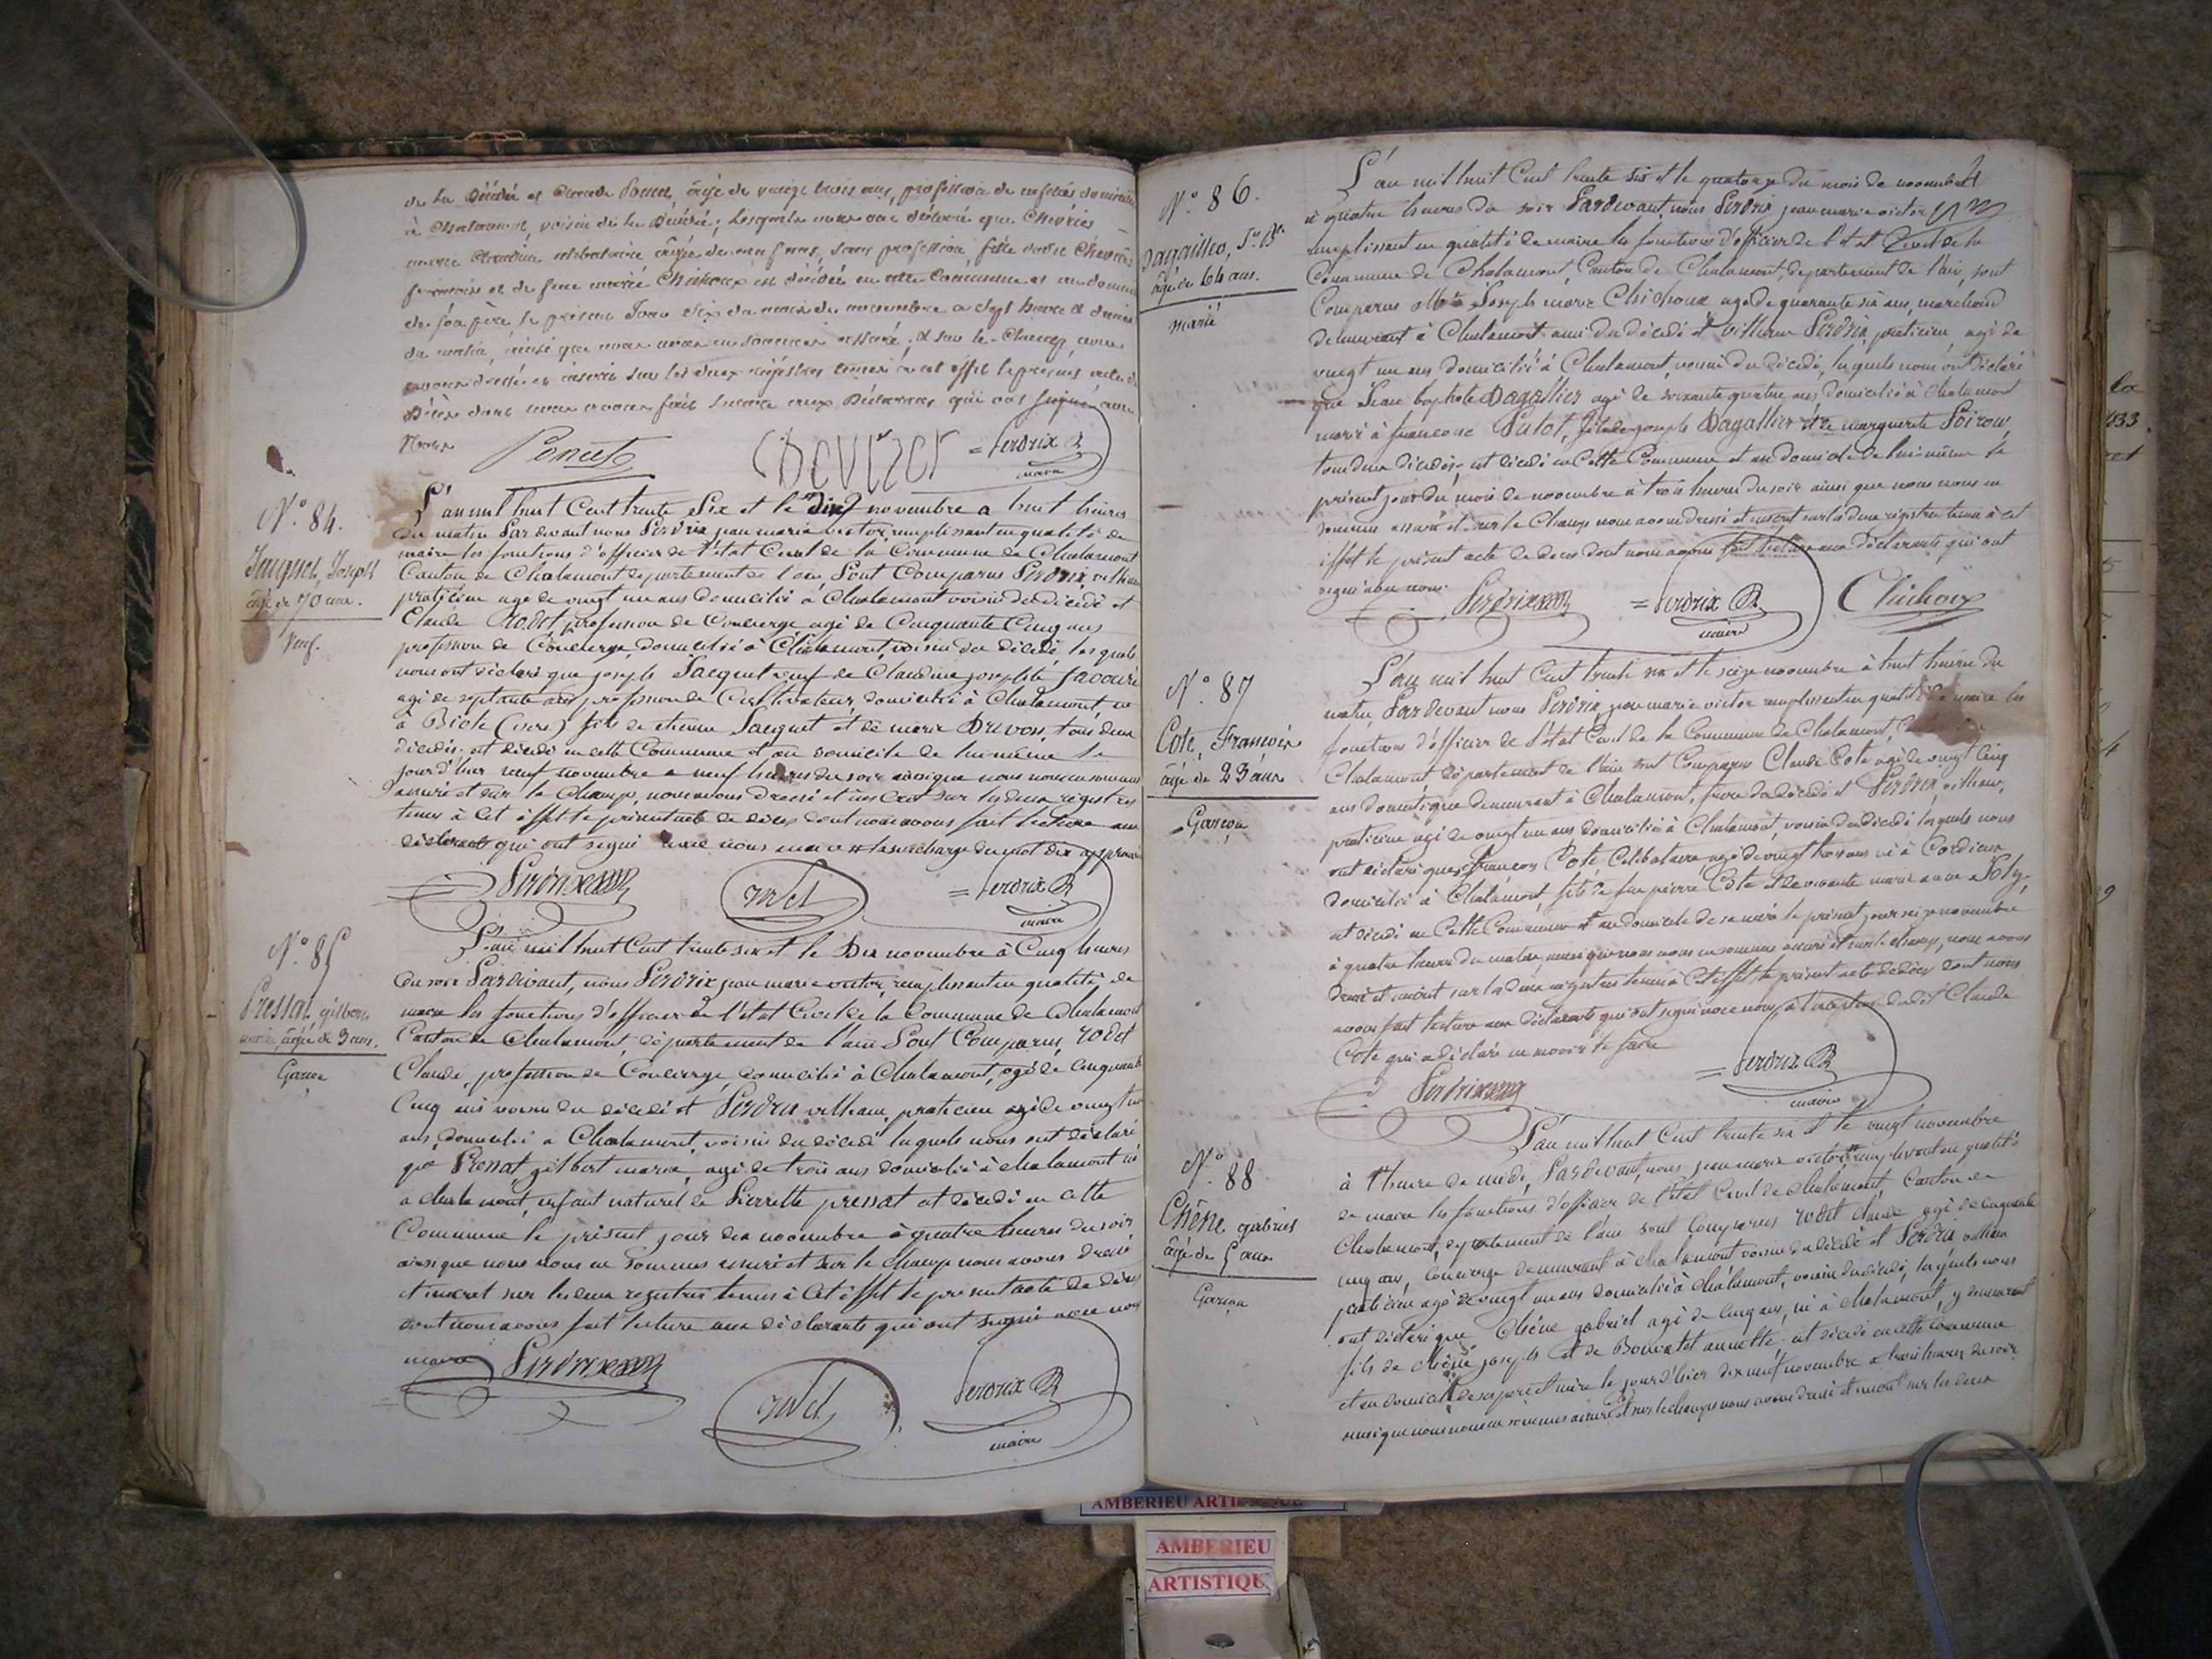 de la Décédée et Claude Poncet, âgé de vingt trois ans, profession de
à Chalamont, voisin de la Décédée; Lesquels nous ont déclaré que Chevrier
marie Claudine célibataire âgée de ans, sans profession, fille de Chevrier
françois et de feue marie Chichoux est décédée en cette Commune et au domicile
de son père, le présent Jour dix du mois de novembre a sept heures et demie
du matin, ainsi que nous nous en sommes assuré; et sur le-Champ, nous
avons dressé et inscrit sur les deux régistres tenus à cet effet le présent acte de
Décès dont nous avons fait lecture aux Déclarans qui ont signé avec
Nous
Poncet
Chevrier
= Perdrix
maire
N.° 84.
Jacquet, Joseph
âgé de 70 ans.
Veuf.
L'an mil huit Cent trente Six et le Dix novembre a huit heures
du matin Par devant nous Perdrix jean marie victor remplissant en qualité de
maire les fonctions d'officier de l'état Civil de la Commune de Chalamont
Canton de Chalamont département de l'ain, Sont Comparus Perdrix
praticien agé de vingt un ans domicilié à Chalamont voisin du décédé et
Claude Rodet profession de Concierge agé de Cinquante Cinq ans
profession de Concierge, domicilié à Chalamont, voisin du décédé, lesquels
nous ont déclaré que joseph Jacquet veuf de Claudine josephte
agé de septante ans profession de Cultivateur, domicilié à Chalamont, né
à (isere) fils de etienne Jacquet et de marie Drevon, tous deux
décédés est décédé en cette Commune et au domicile de lui même le
jour d'hier neuf novembre a neuf heures du soir ainsi que nous nous en sommes
assuré et sur le Champ, nous avons dressé et inscrit sur les deux régistres
tenus à cet effet le présent acte de décès dont nous avons fait lecture aux
déclarants qui ont signé avec nous maire la surcharge du mot dix approuvé
Perdrix
rodet
= Perdrix
maire
N.° 85
Pressat, gilbert
marie, âgé de 3 ans.
Garçon
L'an mil huit Cent trente six et le Dix novembre à Cinq heures
du soir Pardevant, nous Perdrix jean marie victor, remplissant en qualité de
maire les fonctions d'officier de l'état Civil de la Commune de Chalamont
Canton de Chalamont, département de l'ain Sont Comparus, rodet
Claude, profession de Concierge, domicilié à Chalamont, agé de Cinquante
Cinq ans voisin du décédé et Perdrix praticien agé de vingt un
ans, domicilié a Chalamont, voisin du décédé lesquels nous ont déclaré
que Pressat, gilbert marie, agé de trois ans domicilié à chalamont né
a chalamont, enfant naturel de Pierrette pressat est décédé en cette
Commune le présent jour dix novembre à quatre heures du soir
ainsi que nous nous en sommes assuré et sur le champ nous avons dressé
et inscrit sur les deux registres tenus à Cet effet le présent acte de décès
dont nous avons fait lecture aux déclarants qui ont signé avec nous
maire
Perdrix
rodet
Perdrix
maire
N.° 86.
Dagallier, J.n B.te
âgé de 64 ans.
marié
L'an mil huit Cent trente six et le quatorze du mois de novembre
à quatre heures du soir Pardevant, nous Perdrix jean marie victor
remplissant en qualité de maire les fonctions d'officier de l'état Civil de la
Commune de Chalamont, Canton de Chalamont, departement de l'ain, sont
Comparus Joseph marie Chichoux agé de quarante six ans, marchand
demeurant à Chalamont ami du décédé et Perdrix, praticien, agé de
vingt un ans domicilié à Chalamont, voisin du décédé, lesquels nous ont déclaré
que Jean baptiste Dagallier agé de soixante quatre ans domicilié à Chalamont
marié à françoise Putot, fils de joseph Dagallier et de marguerite Poiroux,
tous deux décédés, est décédé en Cette Commune et au domicile de lui-même le
présent jour du mois de novembre à trois heures du soir ainsi que nous nous en
sommes assuré et sur le Champ nous avons dressé et inscrit sur les deux régistres tenus à cet
effet le présent acte de décès dont nous avons fait lecture aux déclarants qui ont
signé avec nous.
Perdrix
= Perdrix
maire
Chichoux
N.° 87
Cote, François
âgé de 23 ans
Garçon
L'an mil huit Cent trente six et le seize novembre à huit heures du
matin, Par devant nous Perdrix, jean marie victor remplissant en qualité de maire les
fonctions d'officier de l'état Civil de la Commune de Chalamont,
Chalamont, département de l'ain sont Comparus Claude Cote agé de vingt Cinq
ans domestique demeurant à Chalamont, frere du décédé et Perdrix,
praticien agé de vingt un ans domicilié à Chalamont, voisin du décédé lesquels nous
ont déclaré que françois Cote, Célibataire, agé de vingt trois ans né à Cordieux
domicilié à Chalamont, fils de feu pierre Cote et de vivante marie
est décédé en Cette Commune et au domicile de sa mère le présent jour seize novembre
à quatre heures du matin, ainsi que nous nous en sommes assuré et sur le champ, nous avons
dressé et inscrit sur les deux régistres tenus à Cet effet, le présent acte de décès dont nous
avons fait lecture aux déclarants qui ont signé avec nous, à l'exception dudit Claude
Cote qui a déclaré ne savoir le faire
Perdrix
= Perdrix
maire
N.° 88
Chêne gabriel
âgé de 5 ans
Garçon
L'an mil huit Cent trente six et le vingt novembre
à l'heure de midi, Pardevant, nous, jean marie victor remplissant en qualité
de maire les fonctions d'officier de l'état Civil de Chalamont, Canton de
Chalamont, département de l'ain sont Comparus rodet claude agé de cinquante
cinq ans, Concierge demeurant à chalamont voisin du décédé et Perdrix
praticien agé de vingt un ans domicilié à chalamont, voisin du décédé, lesquels nous
ont déclaré que Chêne gabriel agé de Cinq ans, né à chalamont, y demeurant
fils de Chêne joseph et de annette est décédé en cette commune
et au domicile de ses pere et mère le jour d'hier dix neuf novembre a trois heures du soir
ainsi que nous nous en sommes assuré et sur le champ nous avons dressé et inscrit sur les deux
AMBERIEU
AMBERIEU
ARTISTIQUE